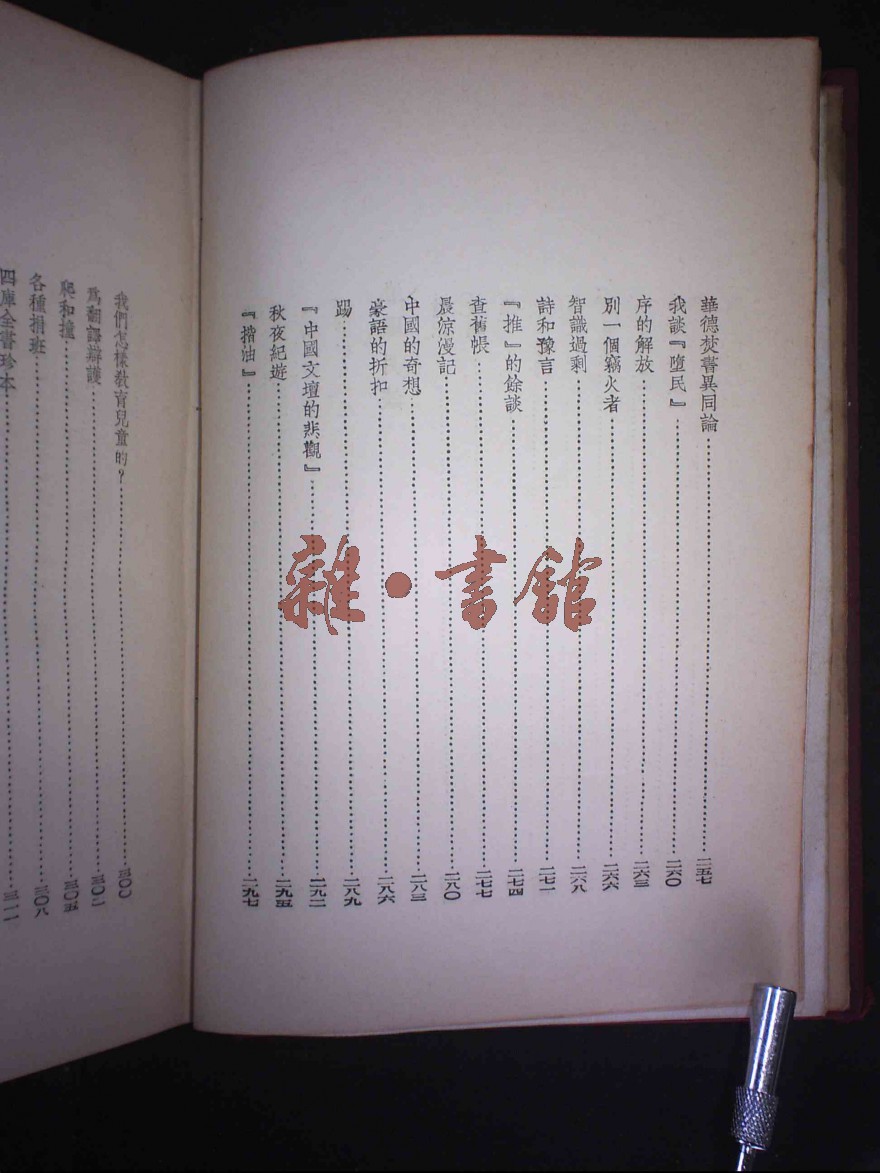 華德焚書異同論……二五七
我談『墮民』……二六〇
序的解放……二六三
別一個竊火者……二六六
智識過剩……二六八
詩和豫言……二七一
『推』的餘談……二七四
查舊帳……二七七
晨涼漫記……二八〇
中國的奇想……二八三
豪語的折扣……二八六
踢……二八九
『中國文壇的悲觀』……二九二
秋夜紀遊……二九五
『揩油』……二九七
我們怎樣教育兒童的?……三〇〇
爲翻譯辯護……三〇二
爬和撞……三〇五
各種捐班……三〇八
四庫全書珍本……三一一
雜·書館